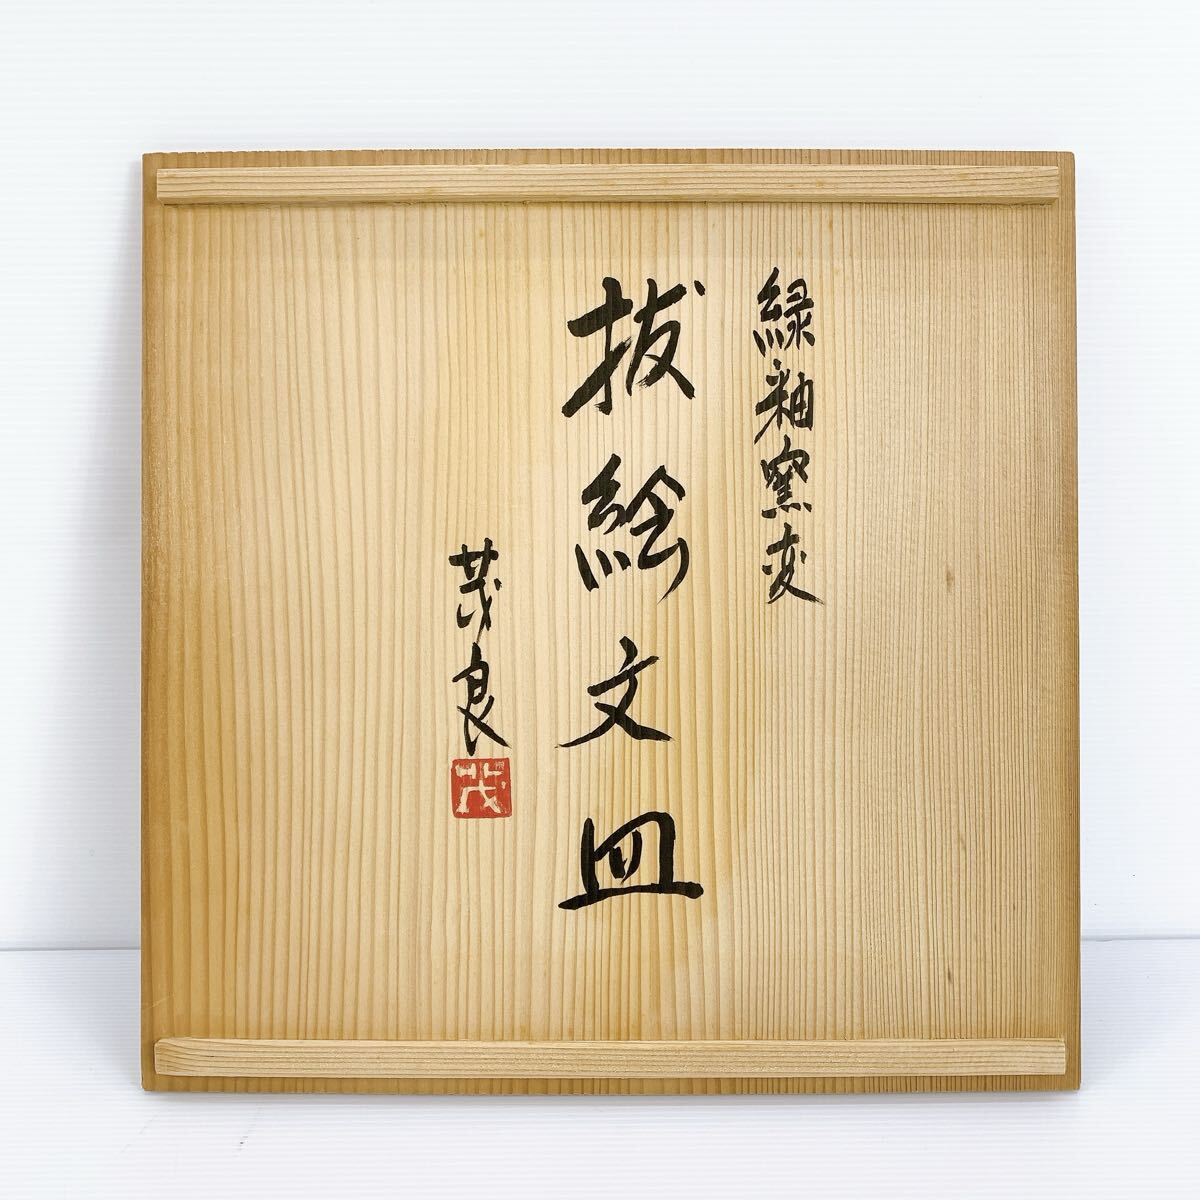 緑釉窯変
抜絵文皿
茂良
茂